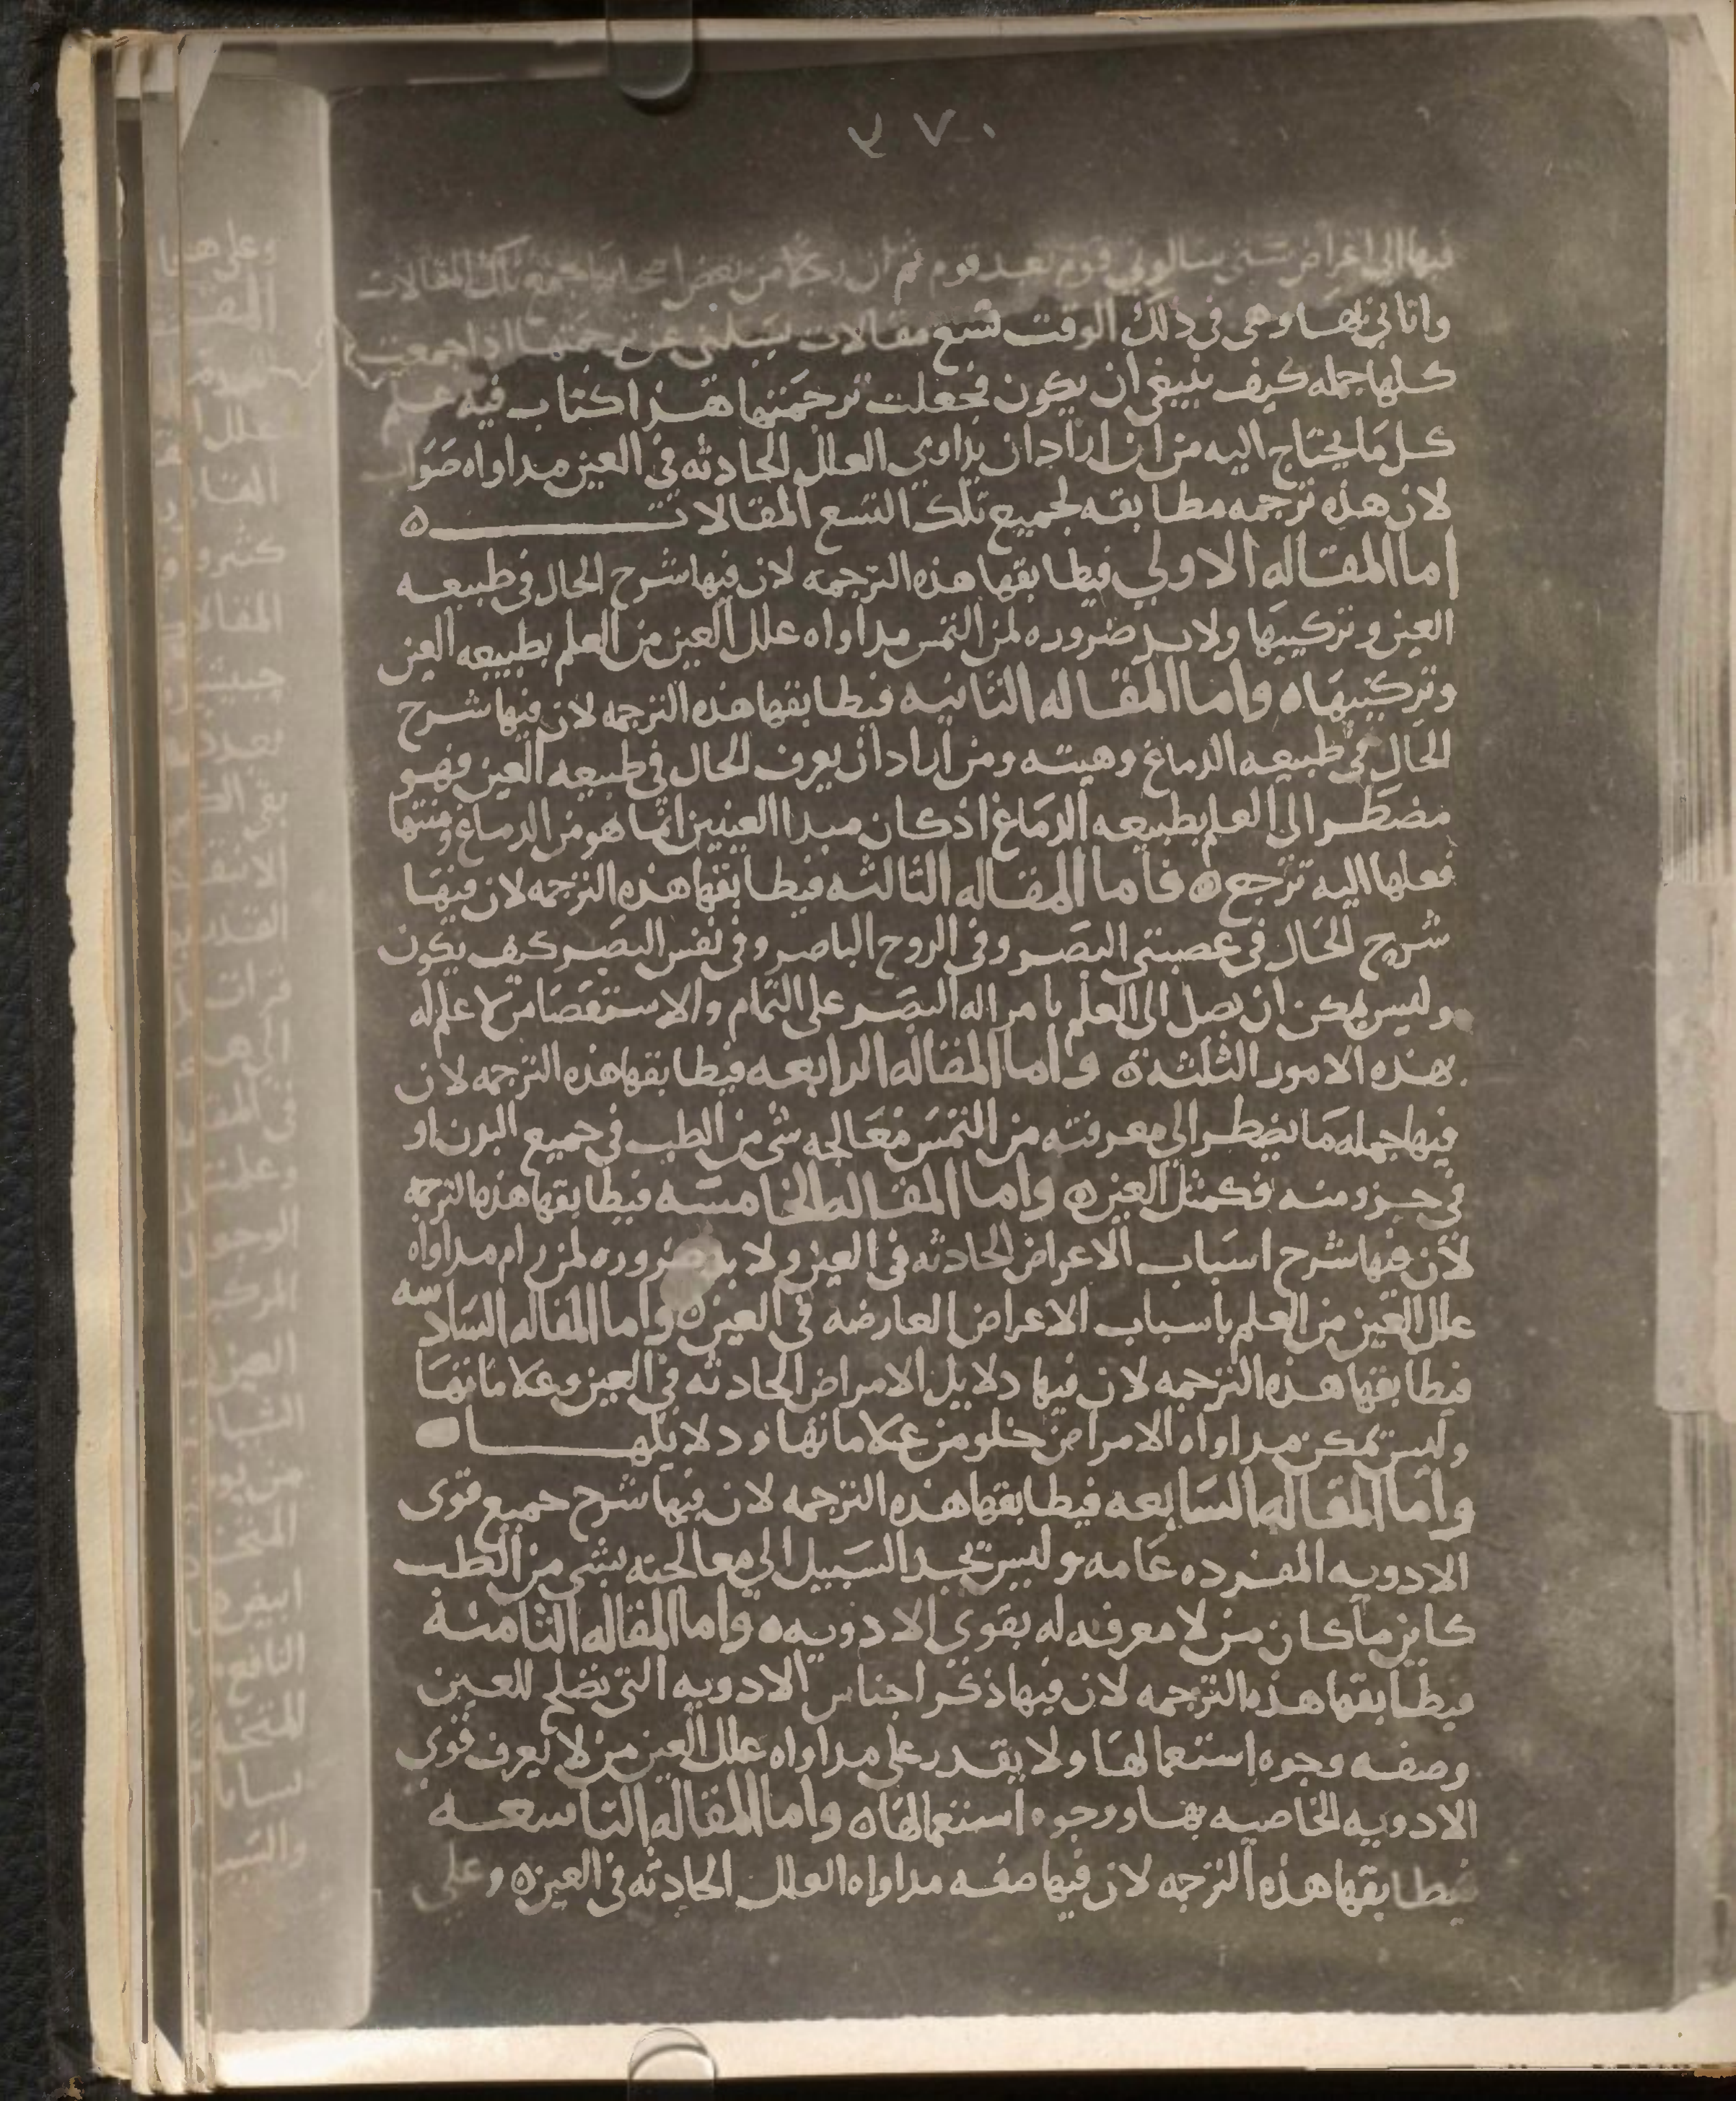 ٢٧٠
فيها الى اغراض شتى سالوني قوم بعد قوم ثم ان رجلا من بعض جمع تلك المقالات
واتاني بها وهي في ذلك الوقت تسع مقالات يسلني عن ترجمتها اذا جمعت
كلها جمله كيف ينبغي ان يكون فجعلت ترجمتها هذا كتاب فيه علم
كل ما يحتاج اليه من ان اراد ان يداوي العلل الحادثه في العين مداواه صواب
لان هذه ترجمه مطابقه لجميع تلك التسع المقالات ه
اما المقاله الاولي فيطابقها هذه الترجمه لان فيها شرح الحال في طبيعه
العين وتركيبها ولا بد ضروره لمن التمس مداواه علل العين من العلم بطبيعه العين
وتركيبها ه واما المقاله الثانيه فيطابقها هذه الترجمه لان فيها شرح
الحال في طبيعه الدماغ وهيته ومن اراد ان يعرف الحال في طبيعه العين فهو
مضطر الى العلم بطبيعه الدماغ اذ كان مبدا العينين انما هو من الدماغ ومنتها
فعلها اليه ترجع ه فاما المقاله الثالثه فيطابقها هذه الترجمه لان فيها
شرح الحال في عصبتي البصر وفي الروح الباصر وفي نفس البصر كيف يكون
وليس يمكن ان يصل الى العلم بامر اله البصر على التمام والاستقصا من لا علم له
بهذه الامور الثلثه ه واما المقاله الرابعه فيطابقها هذه الترجمه لان
فيها جمله ما يضطر الى معرفته من التمس معالجه شي من الطب في جميع البدن او
في جزو منه فكمثل العين ه واما المقاله الخامسه فيطابقها هذه الترجمه
لان فيها شرح اسباب الاعراض الحادثه في العين ولا بد ضروره لمن رام مداواه
علل العين من العلم باسباب الاعراض العارضه في العين ه واما المقاله السادسه
فيطابقها هذه الترجمه لان فيها دلايل الامراض الحادثه في العين وعلاماتها
وليس يمكن مداواه الامراض خلو من علاماتها ودلايلها ه
واما المقاله السابعه فيطابقها هذه الترجمه لان فيها شرح جميع قوى
الادويه المفرده عامه وليس تجد السبيل الى معالجته بشي من الطب
كاين ما كان من لا معرفه له بقوى الادويه ه واما المقاله الثامنه
فيطابقها هذه الترجمه لان فيها ذكر اجناس الادويه التي تصلح للعين
وصفه وجوه استعمالها ولا يقدر على مداواه علل العين من لا يعرف قوي
الادويه الخاصيه بها ووجوه استعمالها ه واما المقاله التاسعه
فيطابقها هذه الترجمه لان فيها صفه مداواه العلل الحادثه في العين ه وعلى